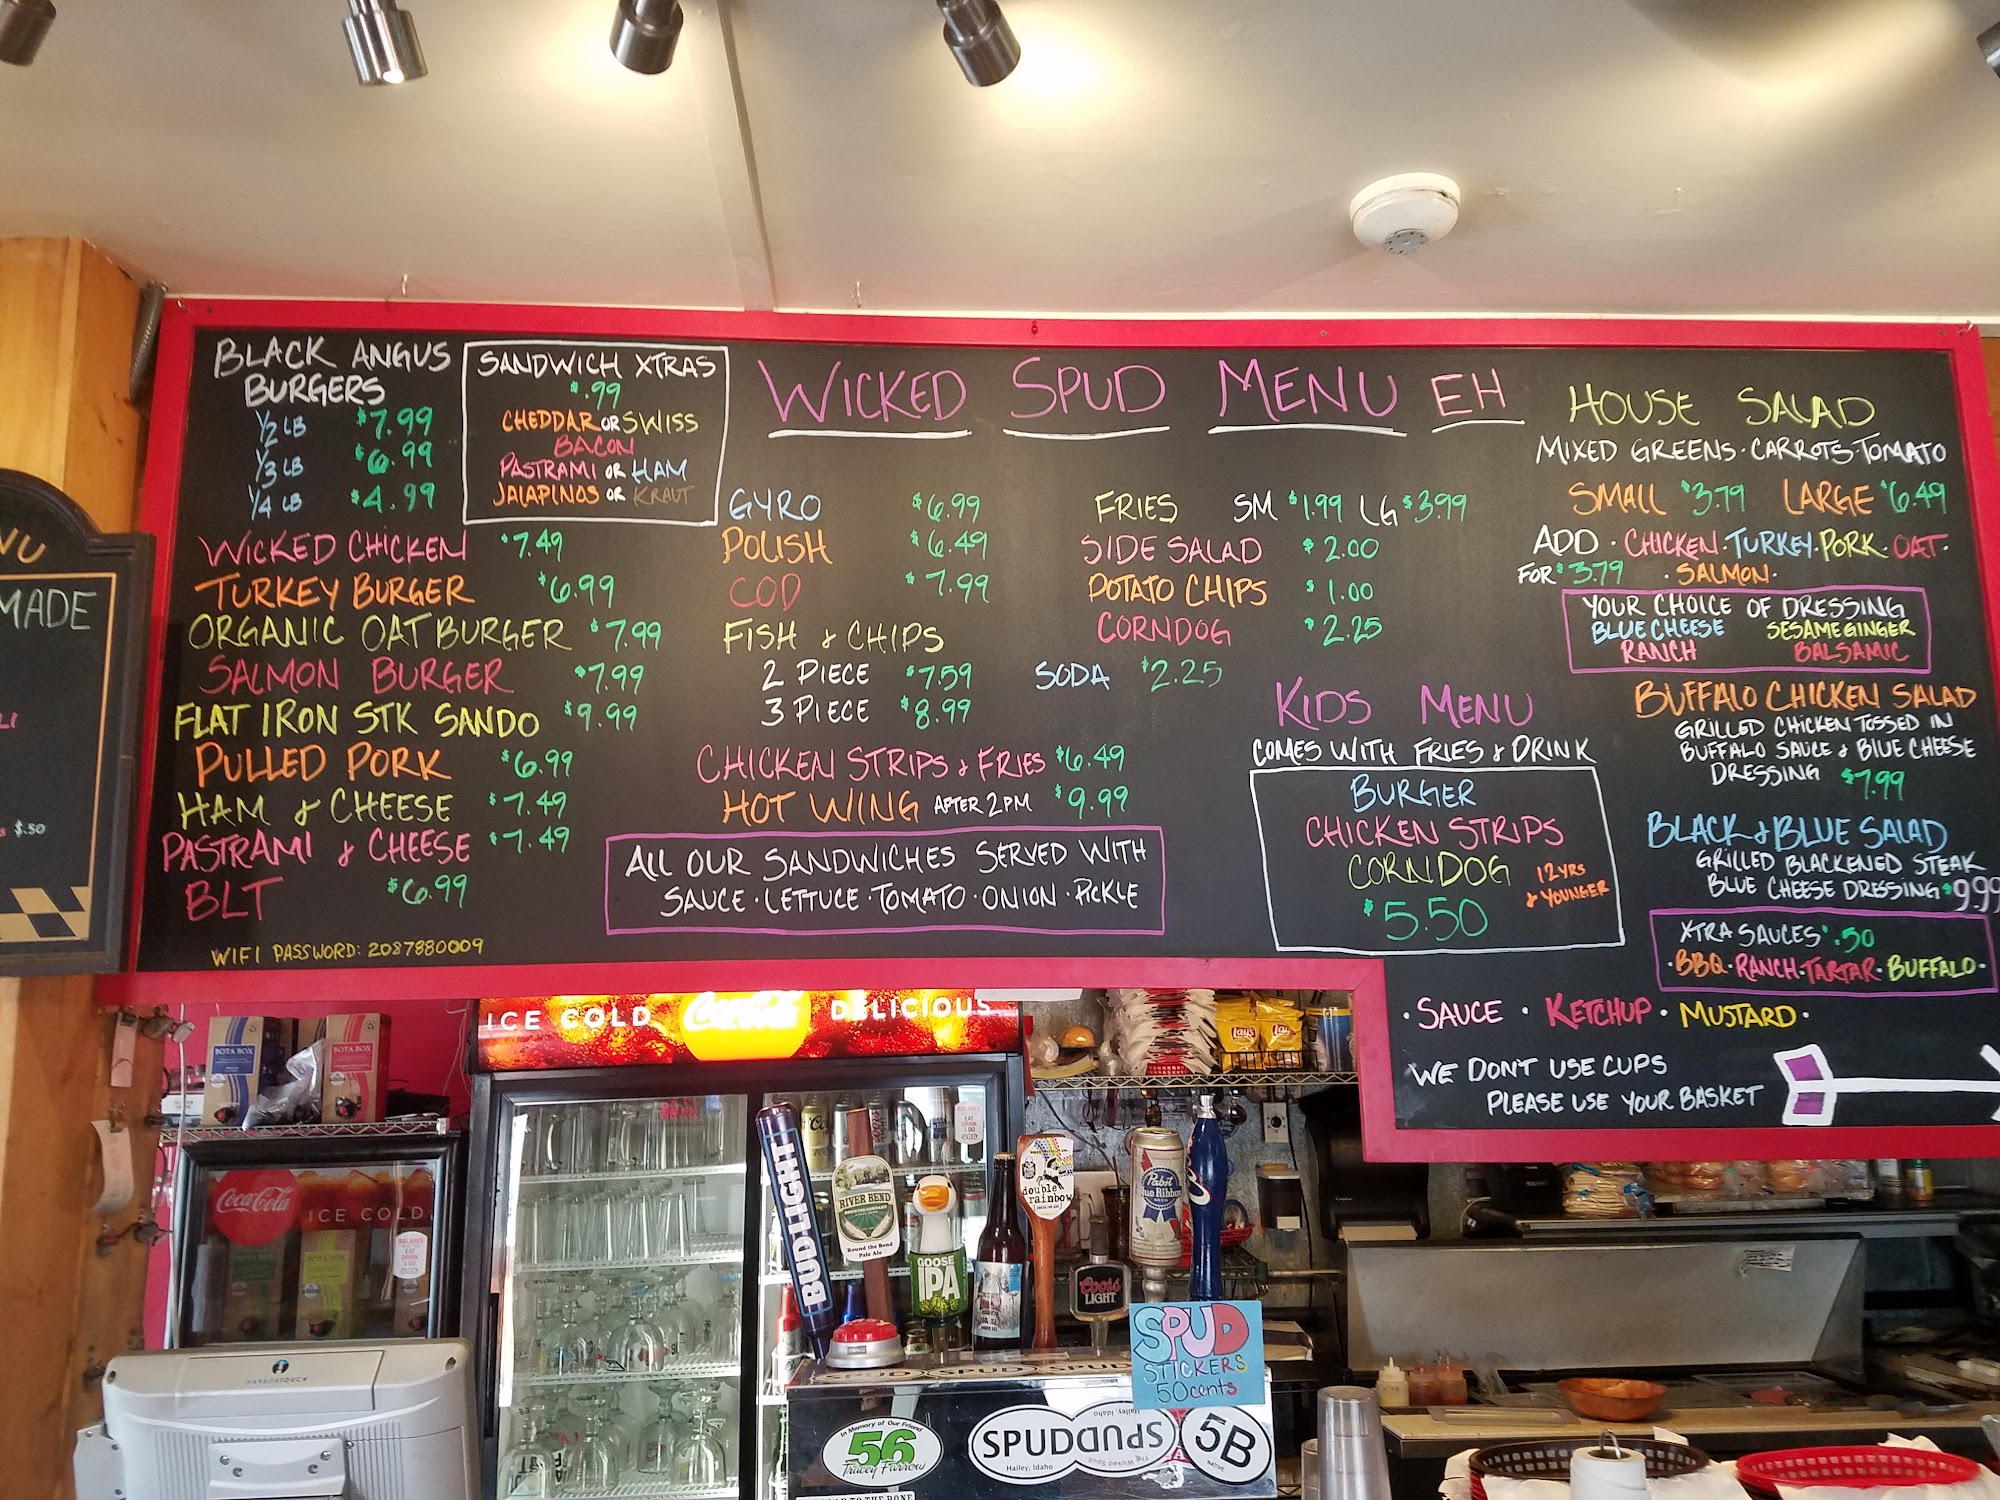 BLACK ANGUS
BURGERS
1/2 LB $7.99
1/3 LB $6.99
1/4 LB $4.99
WICKED CHICKEN $7.49
TURKEY BURGER $6.99
ORGANIC OAT BURGER $7.99
SALMON BURGER $7.99
FLAT IRON STK SANDO $9.99
PULLED PORK $6.99
HAM & CHEESE $7.49
PASTRAMI & CHEESE $7.49
BLT $6.99
WIFI PASSWORD: 2087880009
SANDWICH XTRAS
$.99
CHEDDAR OR SWISS
BACON
PASTRAMI OR HAM
JALAPINOS OR KRAUT
WICKED SPUD MENU EH
GYRO $6.99
POLISH $6.49
COD $7.99
FISH & CHIPS
2 PIECE $7.59
3 PIECE $8.99
CHICKEN STRIPS & FRIES $6.49
HOT WING AFTER 2PM $9.99
ALL OUR SANDWICHES SERVED WITH
SAUCE · LETTUCE · TOMATO · ONION · PICKLE
FRIES SM $1.99 LG $3.99
SIDE SALAD $2.00
POTATO CHIPS $1.00
CORNDOG $2.25
SODA $2.25
KIDS MENU
COMES WITH FRIES & DRINK
BURGER
CHICKEN STRIPS
CORNDOG 12 YRS
& YOUNGER
$5.50
HOUSE SALAD
MIXED GREENS · CARROTS · TOMATO
SMALL $3.79 LARGE $6.49
ADD · CHICKEN · TURKEY · PORK · OAT ·
FOR $3.79 · SALMON ·
YOUR CHOICE OF DRESSING
BLUE CHEESE SESAME GINGER
RANCH BALSAMIC
BUFFALO CHICKEN SALAD
GRILLED CHICKEN TOSSED IN
BUFFALO SAUCE & BLUE CHEESE
DRESSING $7.99
BLACK & BLUE SALAD
GRILLED BLACKENED STEAK
BLUE CHEESE DRESSING $9.99
XTRA SAUCES $.50
· BBQ · RANCH · TARTAR · BUFFALO ·
· SAUCE · KETCHUP · MUSTARD ·
WE DON'T USE CUPS
PLEASE USE YOUR BASKET
NU
MADE
LI
$.50
ICE COLD Coca-Cola DELICIOUS
BOTA BOX
BOTA BOX
Coca-Cola ICE COLD
Lay's
Lay's
BUD LIGHT
RIVER BEND
Round the Bend
Pale Ale
GOOSE
IPA
double
rainbow
Coors
LIGHT
Pabst
Blue Ribbon
SPUD
STICKERS
50 cents
SPUD SPUD
In Memory of Our Friend
56
Tracey Farrow
SPUDANDS
Hailey, Idaho
The Wicked Spud
Hailey, Idaho
5B
NATIVE